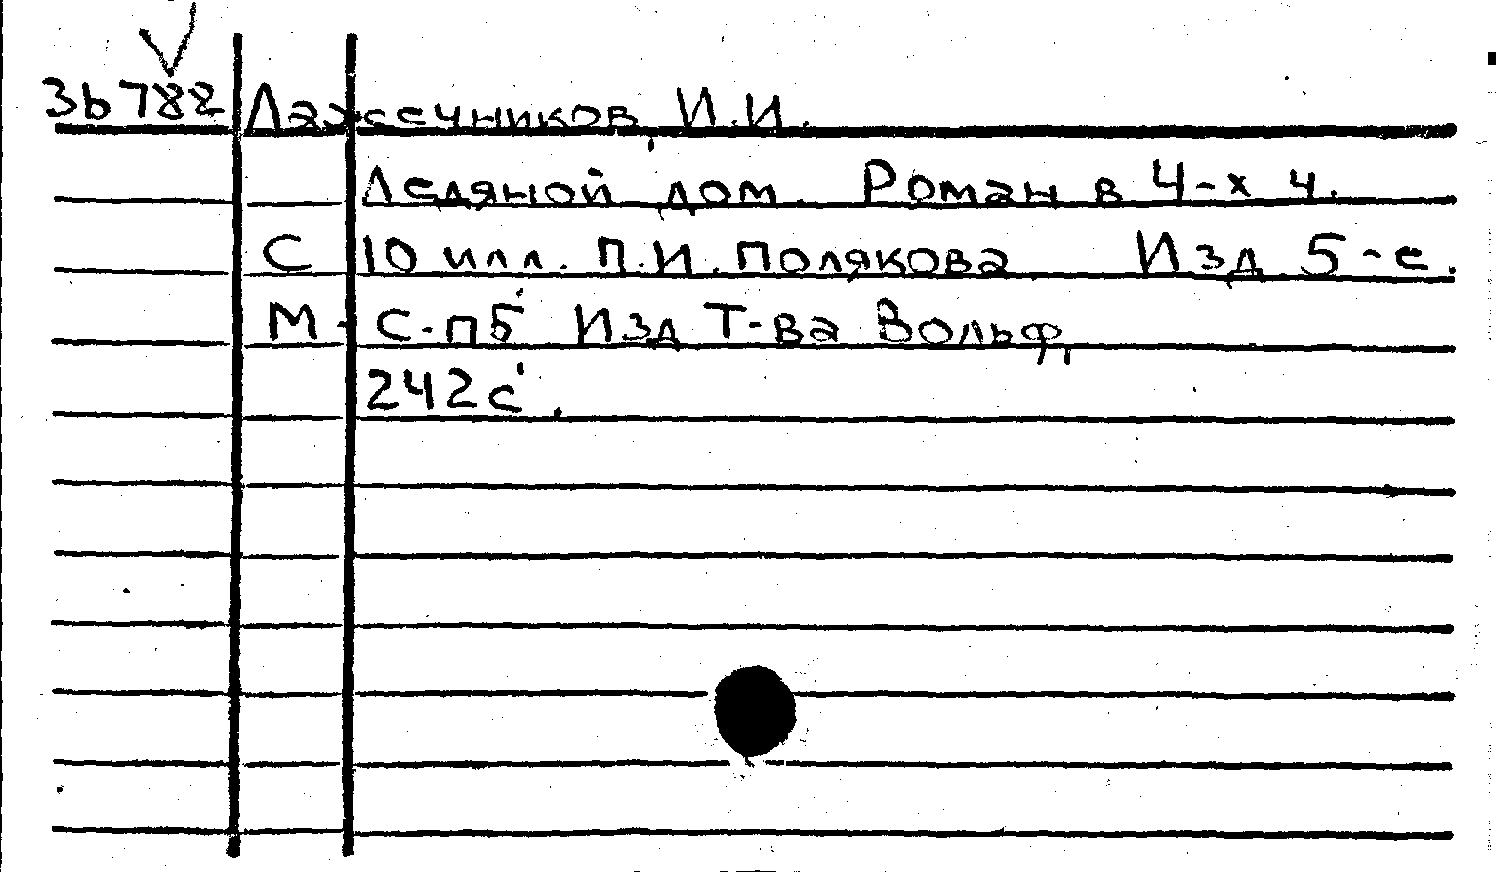 3b782 Лажечников, И.И.
Ледяной дом. Роман в 4-х ч.
С 10 илл. П.И. Полякова Изд. 5-е.
М - С-пб Изд Т-ва Вольф,
242с.